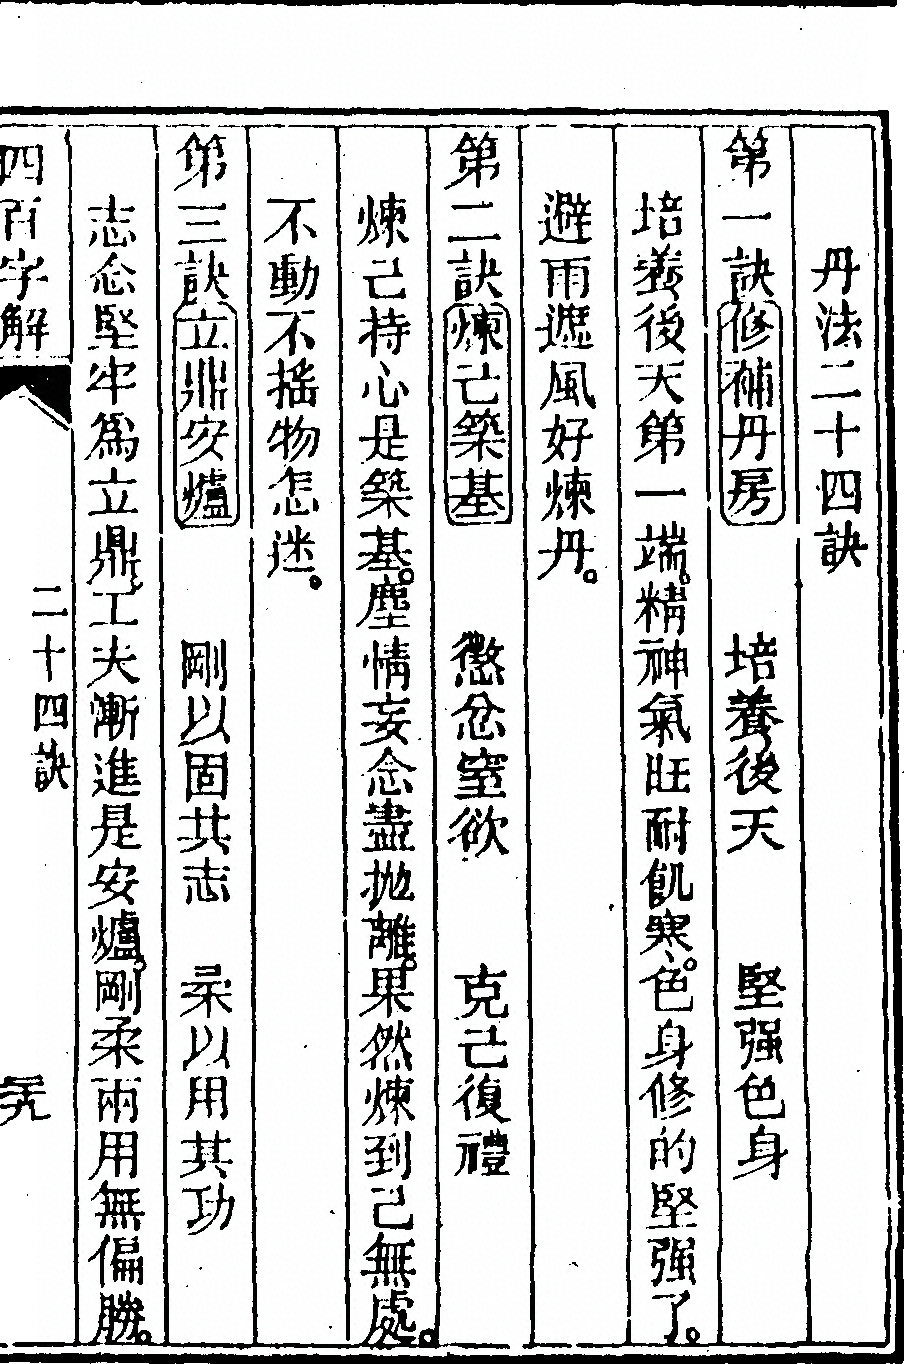 丹法二十四訣
第一訣修補丹房 培養後天 堅强色身
培養後天第一端。精神氣旺耐飢寒。色身修的堅强了。
避雨遮風好煉丹。
第二訣煉己築基 懲忿窒欲 克己復禮
煉己持心是築基。塵情妄念盡抛離。果然煉到己無處。
不動不搖物怎迷。
第三訣立鼎安爐 剛以固其志 柔以用其功
志念堅牢爲立鼎。工夫漸進是安爐。剛柔兩用無偏勝。
四百字解 二十四訣 二九